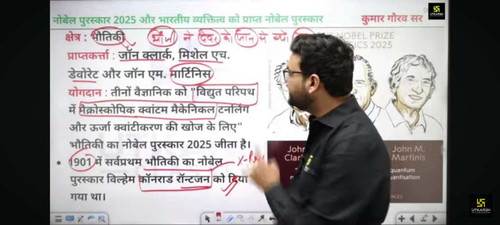 नोबेल पुरस्कार 2025 और भारतीय व्यक्तित्व को प्राप्त नोबेल पुरस्कार
कुमार गौरव सर
UTKARSH
क्षेत्र : भौतिकी
प्राप्तकर्त्ता : जॉन क्लार्क, मिशेल एच.
डेवोरेट और जॉन एम. मार्टिनिस
योगदान : तीनों वैज्ञानिक को "विद्युत परिपथ
में मैक्रोस्कोपिक क्वांटम मैकेनिकल टनलिंग
और ऊर्जा क्वांटीकरण की खोज के लिए"
भौतिकी का नोबेल पुरस्कार 2025 जीता है।
• 1901 में सर्वप्रथम भौतिकी का नोबेल
पुरस्कार विल्हेम कॉनराड रॉन्टजन को दिया
गया था।
NOBEL PRIZE
PHYSICS 2025
John
Clar
John M.
Martinis
quantum
quantisation